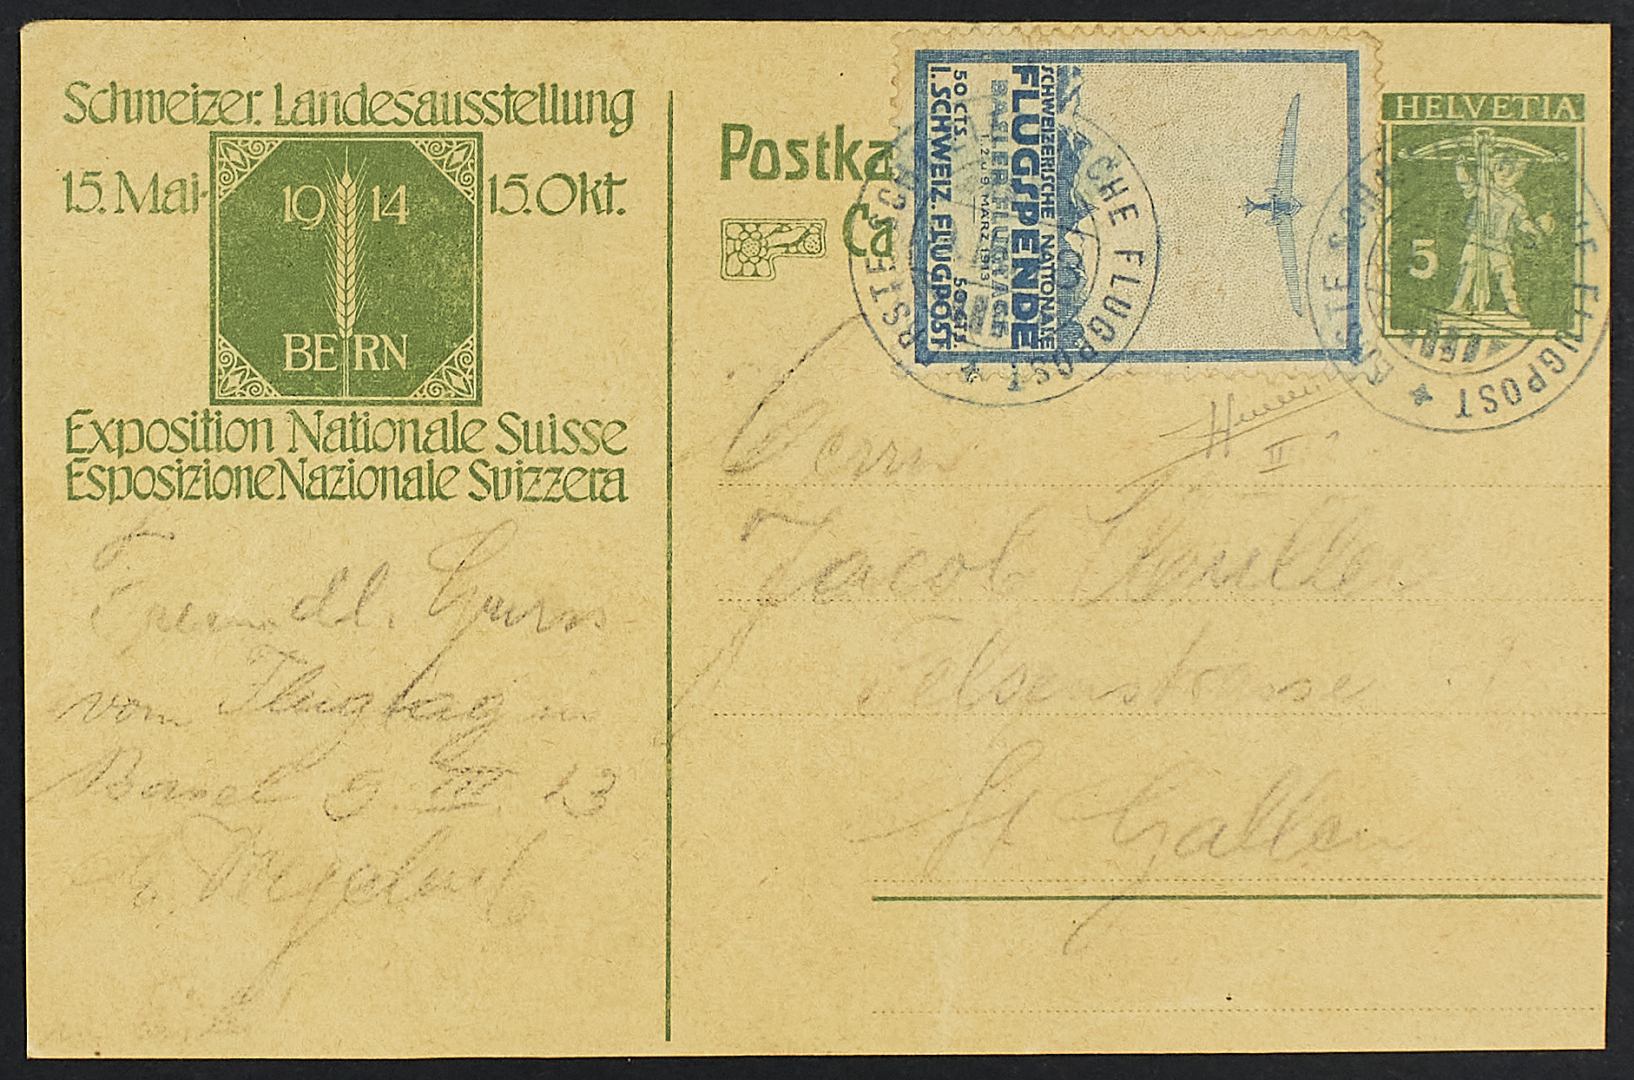 Schweizer. Landesausstellung
15. Mai- 15. Okt.
19 14
BERN
Exposition Nationale Suisse
Esposizione Nazionale Svizzera
Freundl. Gruss
vom Flugtag in
Basel 9. III. 13
Postka
Ca
SCHWEIZERISCHE NATIONALE
FLUGSPENDE
BASLER FLUGTAGE
MÄRZ 1913
50 CTS. 50 CTS.
I. SCHWEIZ. FLUGPOST
HELVETIA
5
ERSTE SCHWEIZERISCHE FLUGPOST
ERSTE SCHWEIZERISCHE FLUGPOST
II
Herrn
Jacob Müller
Felsenstrasse
St Gallen